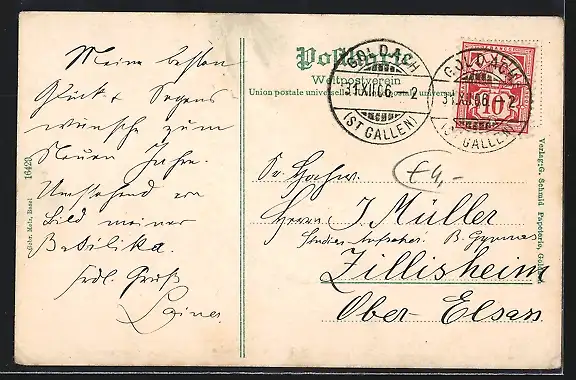 Meine besten
Glück- & Segens
wünsche zum
Neuen Jahre.
Umstehend ein
Bild meiner
Basilika.
frdl. Gruß
16420
Gebr. Metz, Basel
Postkarte
Weltpostverein
Union postale universelle
postale universale
GOLDACH
31.XII.06.-2
(ST. GALLEN)
GOLDACH
31.XII.06.-2
(ST. GALLEN)
10
£4,-
Sr. Hochw.
Herrn J Müller
Studien-Aufseher B. Gymnas
Zillisheim
Ober-Elsass
Verlag: G. Schmid Papeterie, Goldach